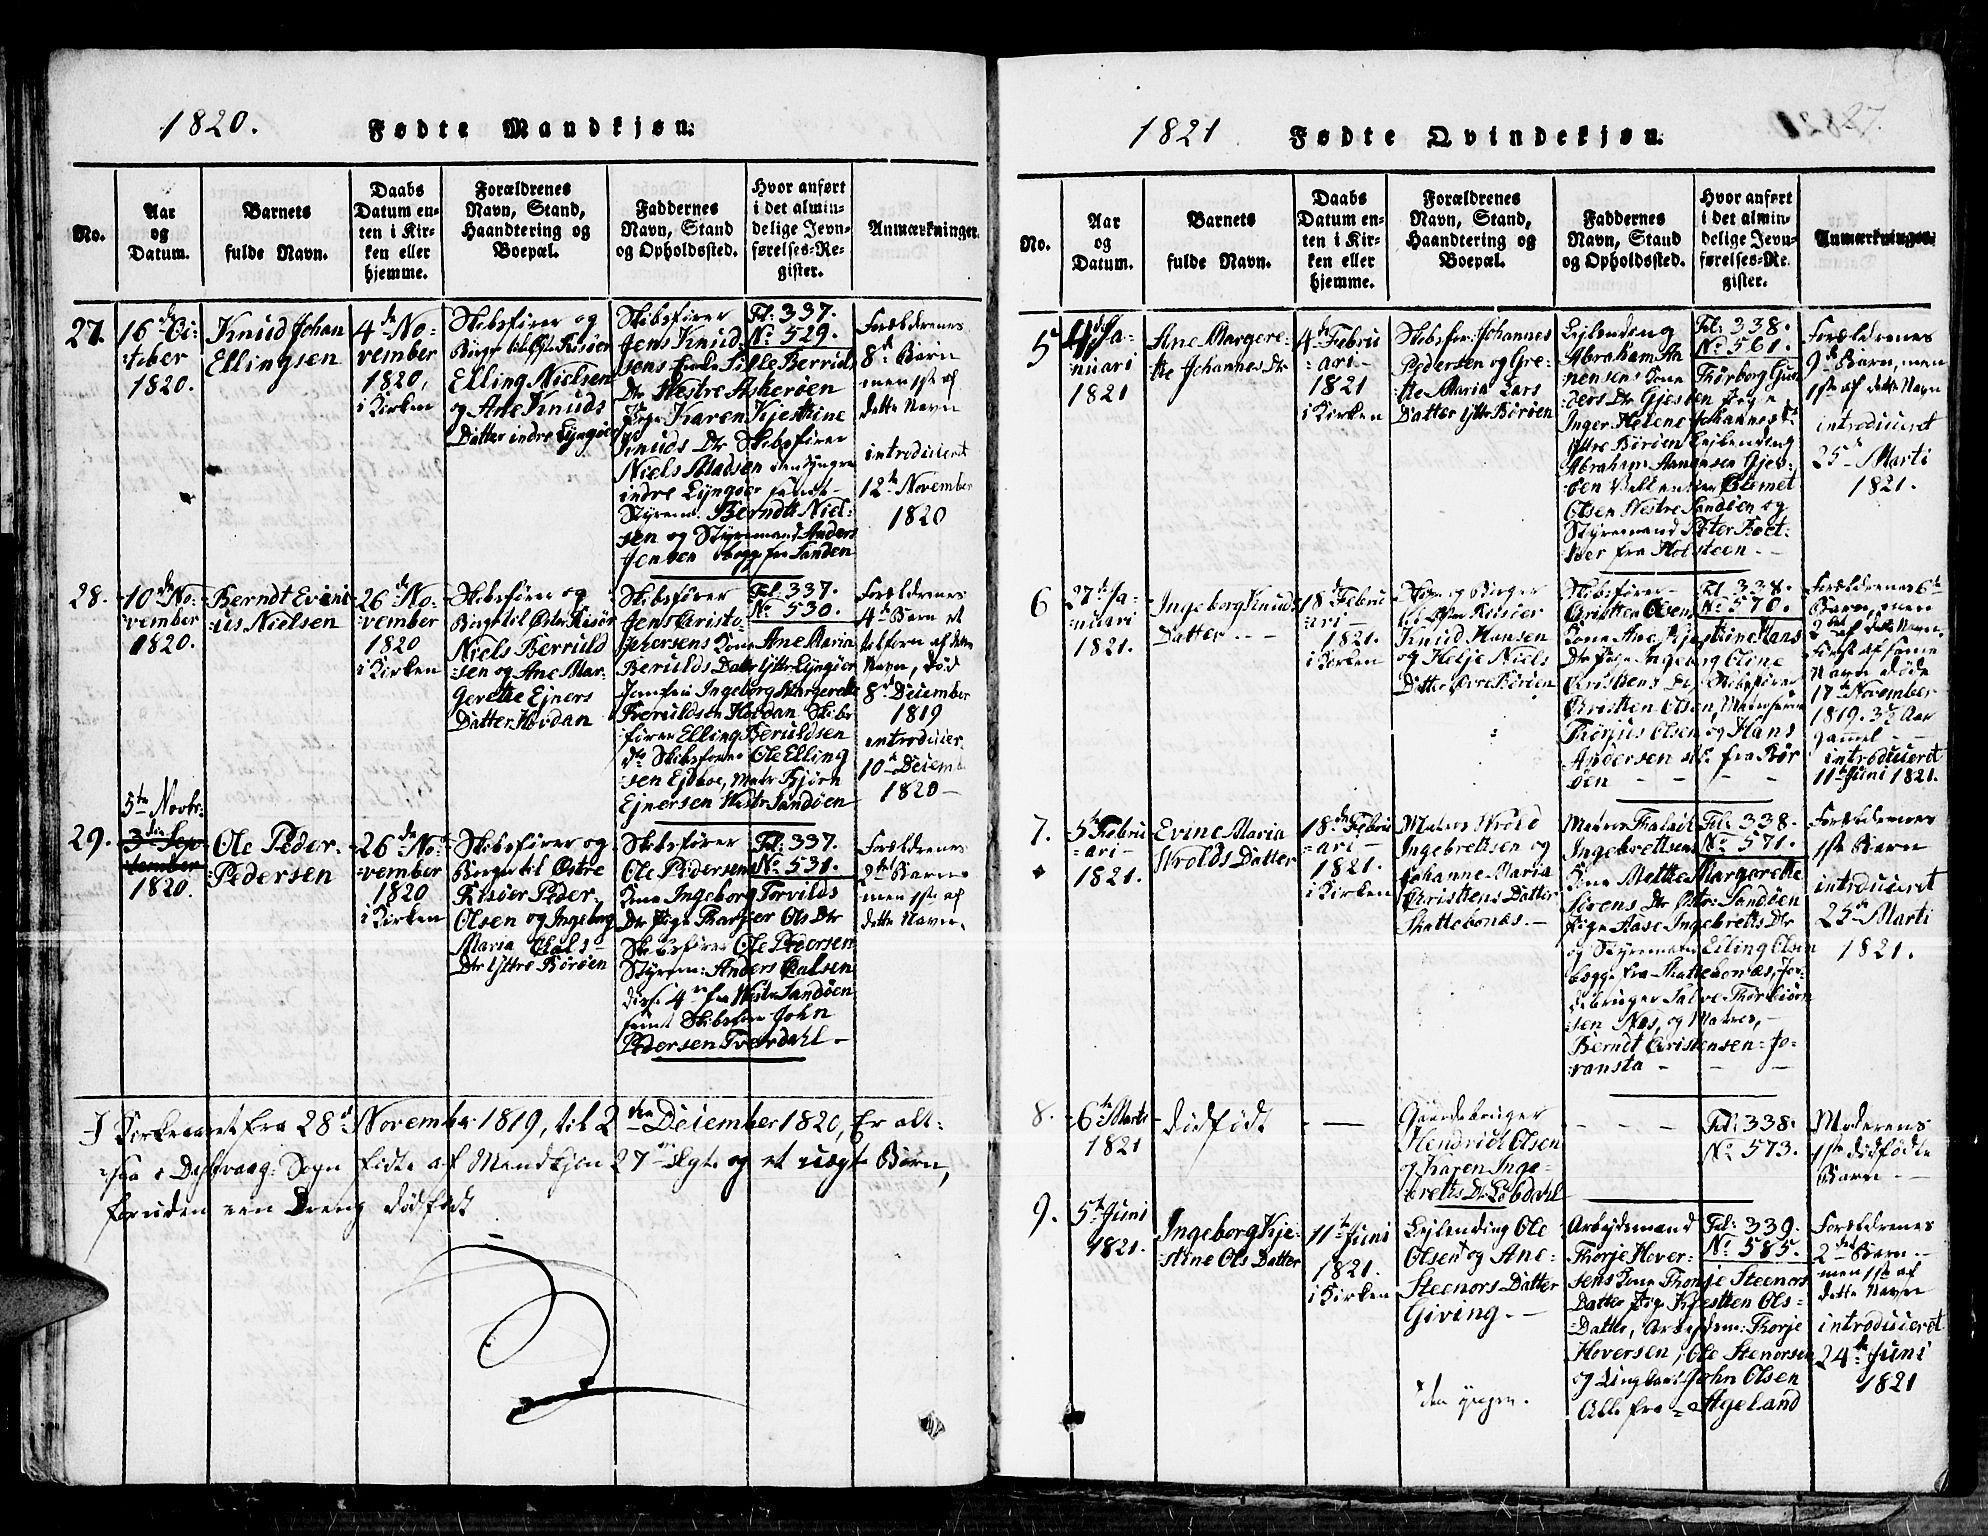 1820.
Fødte Mandkjøn.
No.
Aar
og
Datum.
Barnets
fulde Navn.
Daabs
Datum en-
ten i Kir-
ken eller
hjemme.
Forældrenes
Navn, Stand,
Haandtering og
Boepæl.
Faddernes
Navn, Stand
og Opholdssted.
Hvor anført
i det almin-
delige Jevn-
førelses-Re-
gister.
Anmærkninger.
27.
16de Oc-
tober
1820.
Knud Johan
Ellingsen
4de No-
vember
1820,
i Kirken
Skibsfører og
Borger til Østre Risøer
Elling Nielsen
og Ane Knuds
Datter indre Lyngøer
Skibsfører
Jens Knud-
sens
Dtr Westre Askerøen
Pige Karen Kjestine
Knuds Dtr Skibsfører
Niels Madsen den yngre
indre Lyngøer samt
Styrem: Berndt Niel-
sen og Styremand Anders
Jensen begge fra Sanden
Fol. 337.
No 529.
Forældrenes
8de Barn
men 1ste af
dette Navn
introduceret
12te November
1820
28.
10de No-
vember
1820.
Berndt Evini
us Nielsen
26de No-
vember
1820
i Kirken
Skibsfører og
Borger til Øster Risør
Niels Berruld
sen og Ane Mar-
grethe Ejners
Datter Hovdan
Skibsfører
Jens Christo
phersens Kone Ane Maria
Berulds Datr Yttre Lyngøer
Jomfru Ingeborg Margrethe
Beruldsen Hovdan Skibs
fører Elling Beruldsen
do Skibsfører Ole Elling
sen Ejdboe, Matr: Bjørn
Ejnersen Westr Sandøen
Fol. 337.
No 530.
Forældrenes
4de Barn et
tilforn af dette
Navn, død
8de December
1819
introducer
10de Decemb
1820
29.
5te Novbr:
3die Sep
tember
1820.
Ole Peder
Pedersen
26de No-
vember
1820
i Kirken
Skibsfører og
Borger til Østre
Risøer Peder
Olsen og Ingeborg
Maria Oles
Dtr Yttre Børøen
Skibsfører
Ole Pedersens
Kone Ingeborg Torvilds
Dtr Pige Thargier Ols Dtr
Skibsfører Ole Pedersen
Styrem: Anders Oalsen
disse 4re fra Westr Sandøen
samt Skibsfører John
Pedersen Tverdahl
Fol. 337.
No 531.
Forældrenes
2det Barn
men 1ste af
dette Navn.
I Kirkeaaret fra 28de November 1819, til 2den December 1820, Er alt-
saa i Dybvaag: Sogn fødte af Mandkjøn 27 ægte og et uægte Børn,
foruden een Dreng dødfødt
1821
Fødte Qvindekjøn.
27.
No.
Aar
og
Datum.
Barnets
fulde Navn.
Daabs
Datum en-
ten i Kir-
ken eller
hjemme.
Forældrenes
Navn, Stand,
Haandtering og
Boepæl.
Faddernes
Navn, Stand
og Opholdssted.
Hvor anført
i det almin-
delige Jevn-
førelses-Re-
gister.
Anmærkninger.
5
4de Ja-
nuari
1821
Ane Margre-
the Johannes Dtr
4de Febru
ari
1821
i Kirken
Skibsfør: Johannes
Pedersen og Gre-
the Maria Lars
Datter Yttre Børøen
Lejlending
Abraham Aa-
nensens Kone Thorborg Gun
ders Dtr Gjessen Pige
Inger Helene Johannes Dr
Yttre Børøen Lejlending
Abraham Aanensen Gjes-
sen Clemet
Olsen Westre Sandøen og
Styremand Peter
fra Holsteen
Fol: 338.
No 561.
Forældrenes
9de Barn, men
1ste af dette Navn
introduceret
25de Marti
1821.
6
27de Ja-
nuari
1821.
Ingeborg Knuds
Datter
18de Febru
ari
1821.
i Kirken
Skibsfør og Borger
til Østre Risøer
Knud Hansen
og Helje Niels
Datter Øvre Børøen
Skibsfører
Christen Olsens
Kone Ane Kjestine Hans
Dtr Pige Ingeborg Oline
Christens Dr Skibsfører
Christen Olsen, Matroserne
Thorjus Olsen og Hans
Andersen alle fra Bør
øen
Fol. 338.
No 570.
Forældrenes 6te
Barn, men
2det af dette Navn
først af samme
Navn døde
17de November
1819. 3½ Aar
gammel
introduceret
11te Juni 1821.
7.
5te Febru
ari
1821.
Evine Maria
Wrolds Datter
18de Febru
ari
1821.
i Kirken
Matros Wrold
Ingebrettsen og
Johanne Maria
Christens Datter
Skattebonæs.
Matros
Ingebrettsens
Kone Mette Margrethe
Sørens Dtr Østr: Sandøen
Pige Aase Ingebretts Dtr
og Styremand Elling Olsen
begge fra Skattebonæs, Jor-
debruger Salve Thorbiørn
sen Næs, og Matros,
Berndt Christensen Jo-
ransta
Fol: 338.
No 571.
Forældrenes
1ste Barn
introduceret
25de Marti
1821.
8.
6te Marti
1821
dødfødt
Gaardebruger
Hendrich Olsen
og Karen Inge-
bretts Dr Løbdahl
Fol: 338.
No 573.
Moderens
1ste dødfødte
Barn
9.
5te Juni
1821.
Ingeborg Kje-
stine Ols Datter
11te Juni
1821.
i Kirken
Lejlending Ole
Olsen og Ane
Steenors Datter
Giving.
den yngre.
Arbejdsmand
Thorje Hover-
sens Kone Thorje Steenors
Datter Pige Kjesten Ols-
Datter, Arbejdsm: Thorje
Hoversen, Ole Stenorsen
og Ungkarl John Olsen
Alle fra Ageland
Fol: 339.
No 585.
Forældrenes
2det Barn
men 1ste af
dette Navn
introduceret
24de Juni
1821